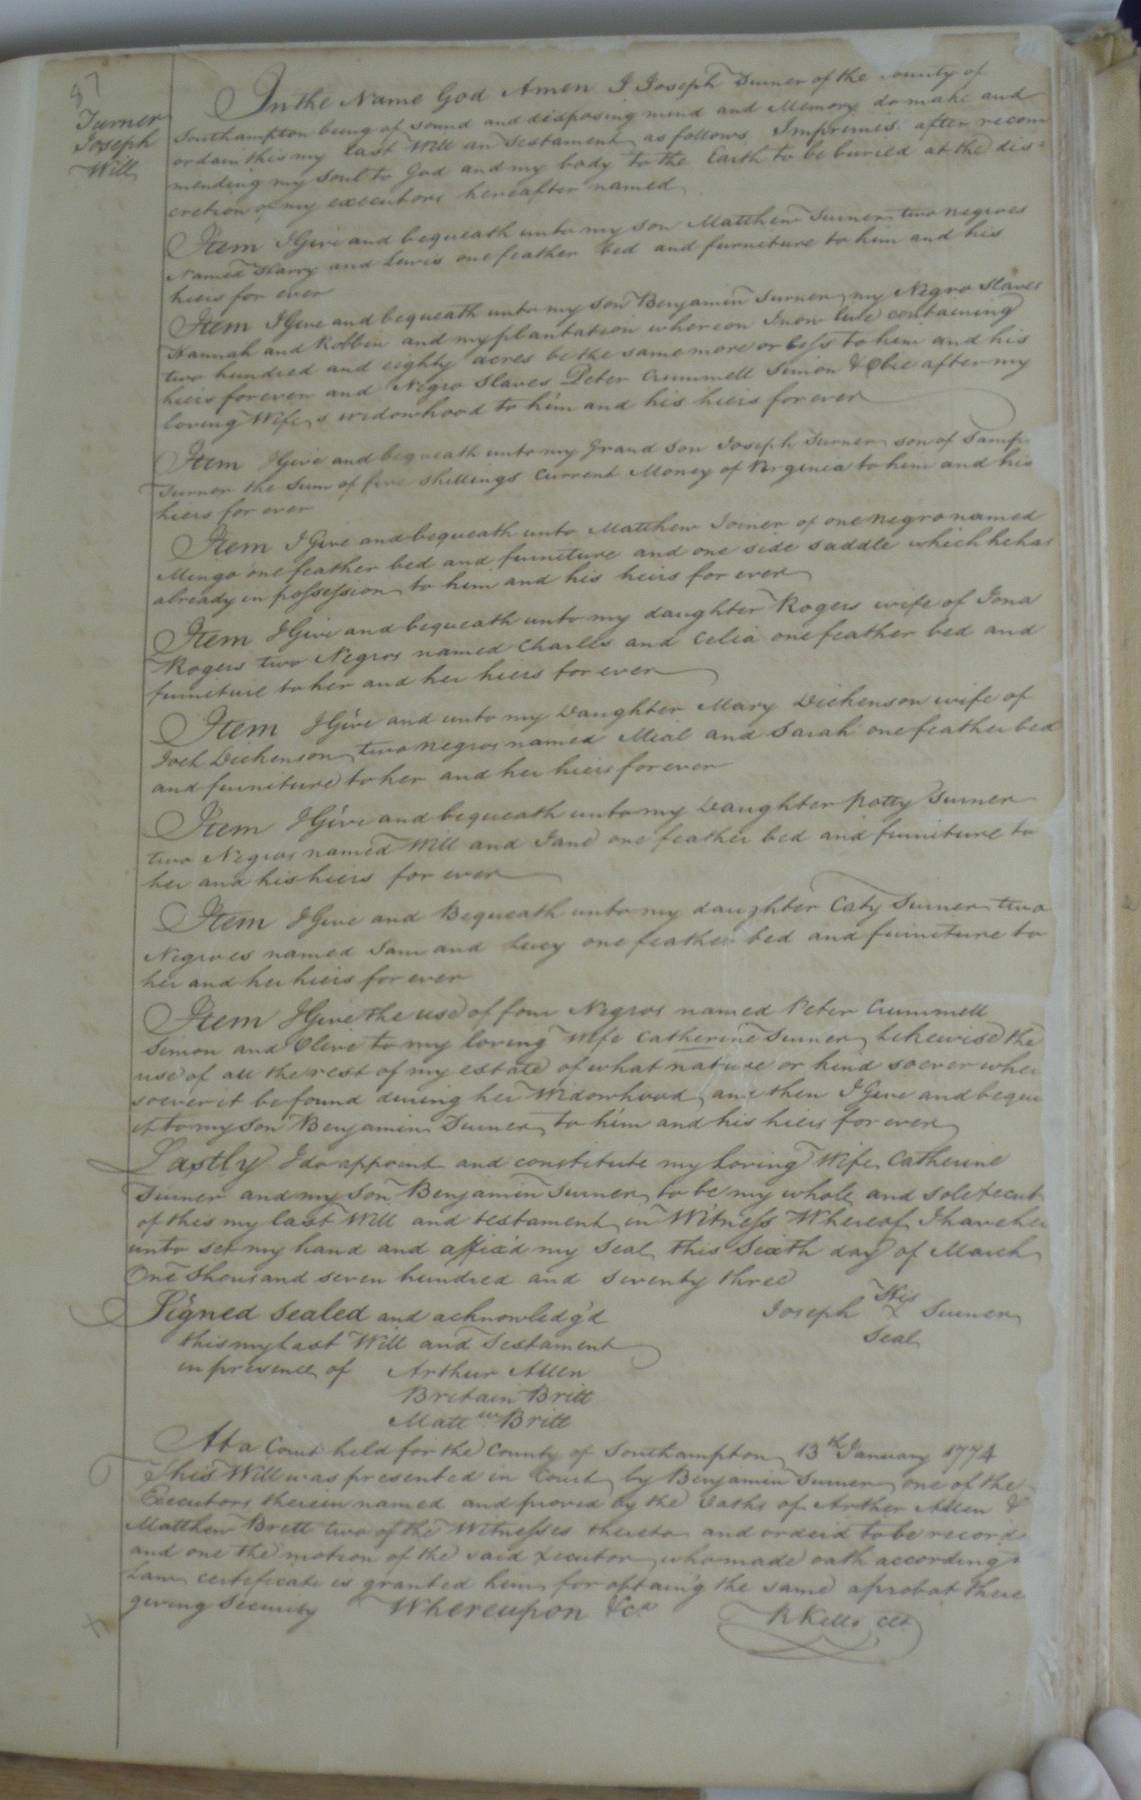 87
Turner
Joseph
Will
In the Name God Amen I Joseph Turner of the County of
Southampton being of sound and disposing mind and Memory do make and
ordain this my last Will an Testament as follows Imprimis after recom
mending my Soul to God and my body to the Earth to be buried at the dis=
cretion of my executors hereafter named
Item I Give and bequeath unto my son Matthew Turner two negroes
Named Harry and Lewis one feather bed and furniture to him and his
hiers for ever
Item I Give and bequeath unto my Son Benjamin Turner my Negro Slaves
Hannah and Robbin and my plantation whereon I now live containing
two hundred and eighty acres be the same more or less to him and his
hiers forever and Negro Slaves Peter Crummell Simon & Olive after my
loving Wife,s widowhood to him and his hiers for ever
Item I Give and bequeath unto my Grand Son Joseph Turner son of
Turner the Sum of five Shillings Current Money of Virginia to him and his
hiers for ever
Item I Give and bequeath unto Matthew Joiner of one negro named
Mingo one feather bed and furniture and one side saddle which he has
already in possession to him and his heirs for ever
Item I Give and bequeath unto my daughter Rogers wife of Jona
Rogers two Negros named Charles and Celia one feather bed and
furniture to her and her hiers for ever
Item I Give and unto my Daughter Mary Dickenson wife of
Joel Dickenson two negros named and Sarah one feather bed
and furniture to her and her hiers for ever
Item I Give and bequeath unto my Daughter Patty Turner
two Negros named Will and Jane one feather bed and furniture to
her and his hiers for ever
Item I Give and Bequeath unto my daughter Caty Turner two
Negroes named Sam and Lucy one feather bed and furniture to
her and her hiers for ever
Item I Give the use of four Negros named Peter Crummell
Simon and Olive to my loving Wife Catherine Turner likewise the
use of all the rest of my estate of what nature or kind soever wher
soever it be found during her Widowhood and then I Give and beque
it to my Son Benjamin Turner to him and his hiers for ever
Lastly I do appoint and constitute my Loving Wife Catherine
Turner and my Son Benjamin Turner to be my whole and sole Execut
of this my last Will and testament in Witness Whereof I have her
unto set my hand and affix'd my Seal this Sixth day of March
One thousand seven hundred and seventy three
His
Joseph X Turner
Seal
Signed Sealed and acknowledg'd
this my Last Will and Testament
in presence of Arthur Allen
Britain Britt
Matt.w Britt
At a Court held for the County of Southampton 13th January 1774
This Will was presented in Court by Benjamin Turner one of the
Executors therein named and proved by the Oaths of Arther Allen &
Matthew Brett two of the Witnesses thereto and orderd to be record
and one the motion of the said Executor who made oath according to
Law certificate is granted him for obtaing the same aprobat there
giving Security Whereupon &c.a
R Kello Clk